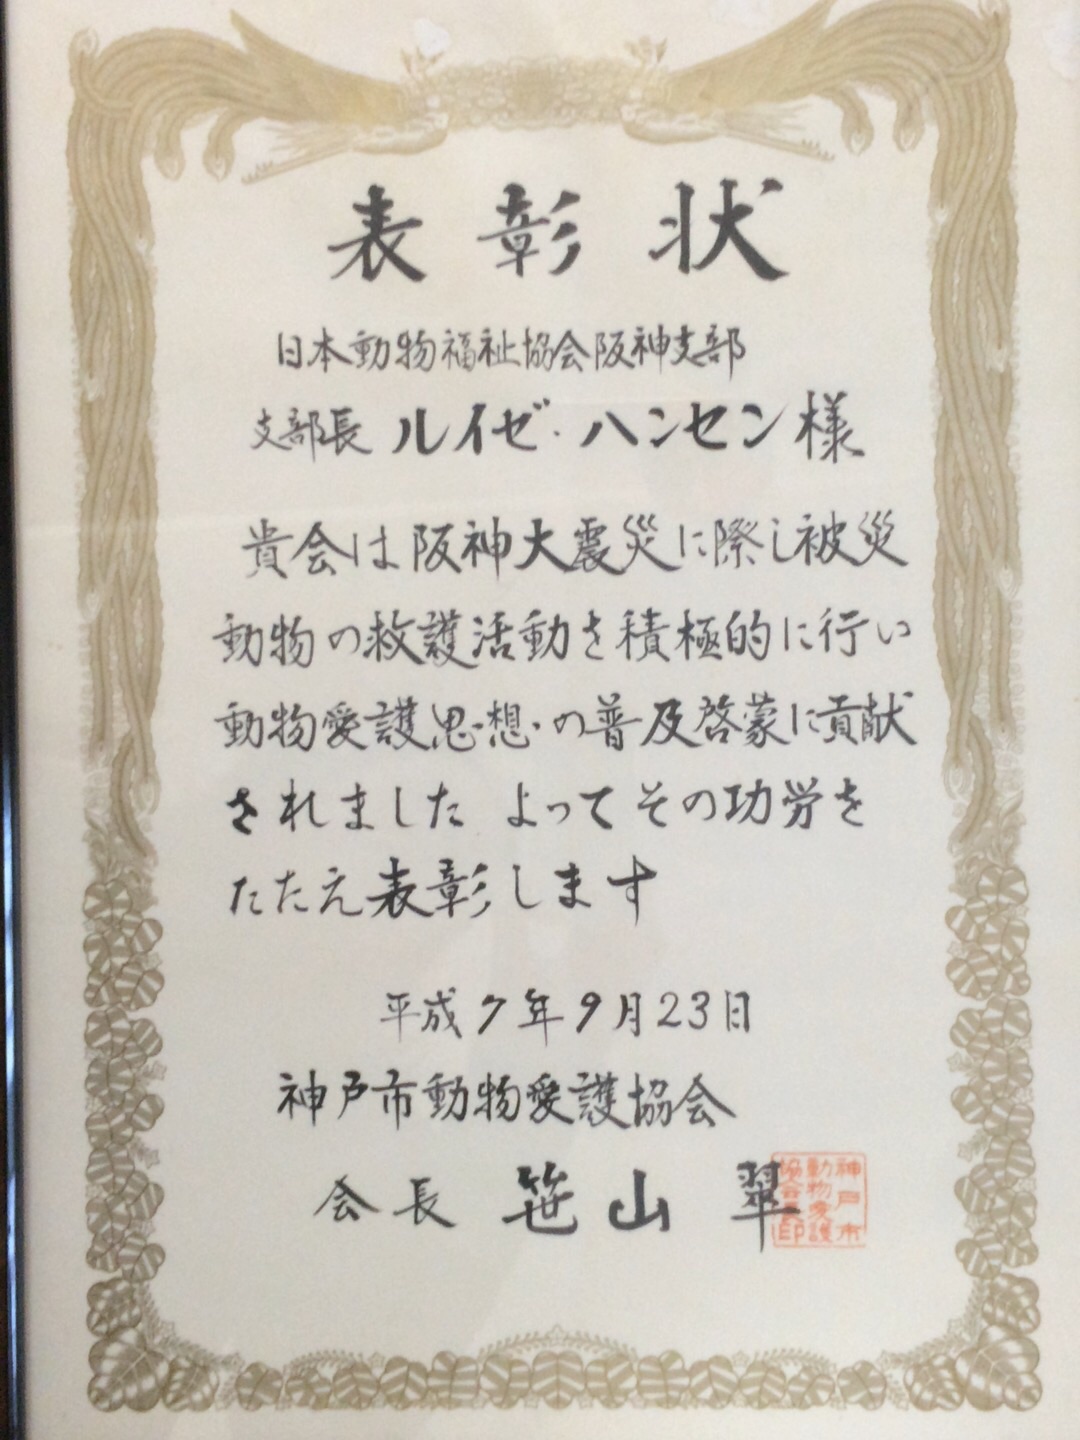 表彰状
日本動物福祉協会阪神支部
支部長 ルイゼ・ハンセン様
貴会は阪神大震災に際し被災
動物の救護活動を積極的に行い
動物愛護思想の普及啓蒙に貢献
されました よってその功労を
たたえ表彰します
平成7年9月23日
神戸市動物愛護協会
会長 笹山 翠
神戸市
動物愛護
協会長印